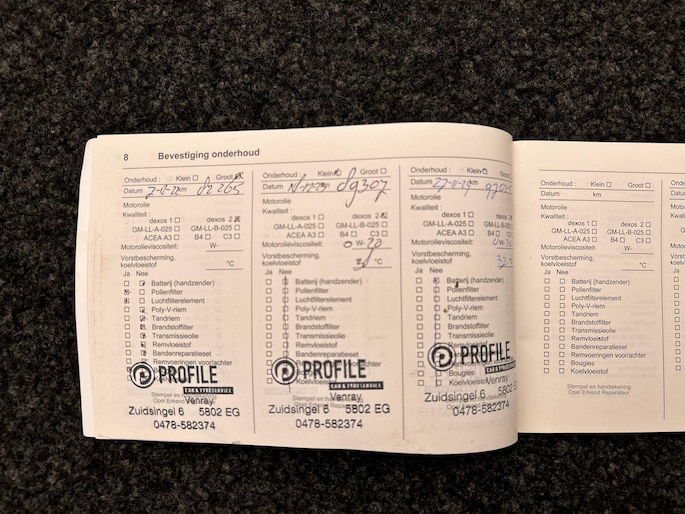 8 Bevestiging onderhoud
Onderhoud : Klein Groot
Datum km 82265
Motorolie
Kwaliteit :
dexos 1 dexos 2
GM-LL-A-025 GM-LL-B-025
ACEA A3 B4 C3
Motorolieviscositeit: W-
Vorstbescherming,
koelvloeistof °C
Ja Nee
Batterij (handzender)
Pollenfilter
Luchtfilterelement
Poly-V-riem
Tandriem
Brandstoffilter
Transmissieolie
Remvloeistof
Bandenreparatieset
Remvoeringen voor/achter
PROFILE
CAR & TYRESERVICE
Venray
Zuidsingel 6 5802 EG
0478-582374
Onderhoud : Klein Groot
Datum 89307
Motorolie
Kwaliteit :
dexos 1 dexos 2
GM-LL-A-025 GM-LL-B-025
ACEA A3 B4 C3
Motorolieviscositeit: 0 W-20
Vorstbescherming,
koelvloeistof
Ja Nee
Batterij (handzender)
Pollenfilter
Luchtfilterelement
Poly-V-riem
Tandriem
Brandstoffilter
Transmissieolie
Remvloeistof
Bandenreparatieset
Remvoeringen voor/achter
PROFILE
CAR & TYRESERVICE
Venray
Zuidsingel 6 5802 EG
0478-582374
Onderhoud : Klein Groot
Datum
Motorolie
Kwaliteit :
dexos 1 dexos 2
GM-LL-A-025 GM-LL-B-025
ACEA A3 B4 C3
Motorolieviscositeit:
Vorstbescherming,
koelvloeistof
Ja Nee
Batterij (handzender)
Pollenfilter
Luchtfilterelement
Poly-V-riem
Tandriem
Brandstoffilter
Transmissieolie
Remvloeistof
Bandenreparatieset
PROFILE
Bougies
Koelvloeistof
CAR & TYRESERVICE
Venray
Zuidsingel 6 5802 EG
0478-582374
Onderhoud : Klein Groot
Datum km
Motorolie
Kwaliteit :
dexos 1 dexos 2
GM-LL-A-025 GM-LL-B-025
ACEA A3 B4 C3
Motorolieviscositeit: W-
Vorstbescherming,
koelvloeistof °C
Ja Nee
Batterij (handzender)
Pollenfilter
Luchtfilterelement
Poly-V-riem
Tandriem
Brandstoffilter
Transmissieolie
Remvloeistof
Bandenreparatieset
Remvoeringen voor/achter
Bougies
Koelvloeistof
Stempel en handtekening
Opel Erkend Reparateur